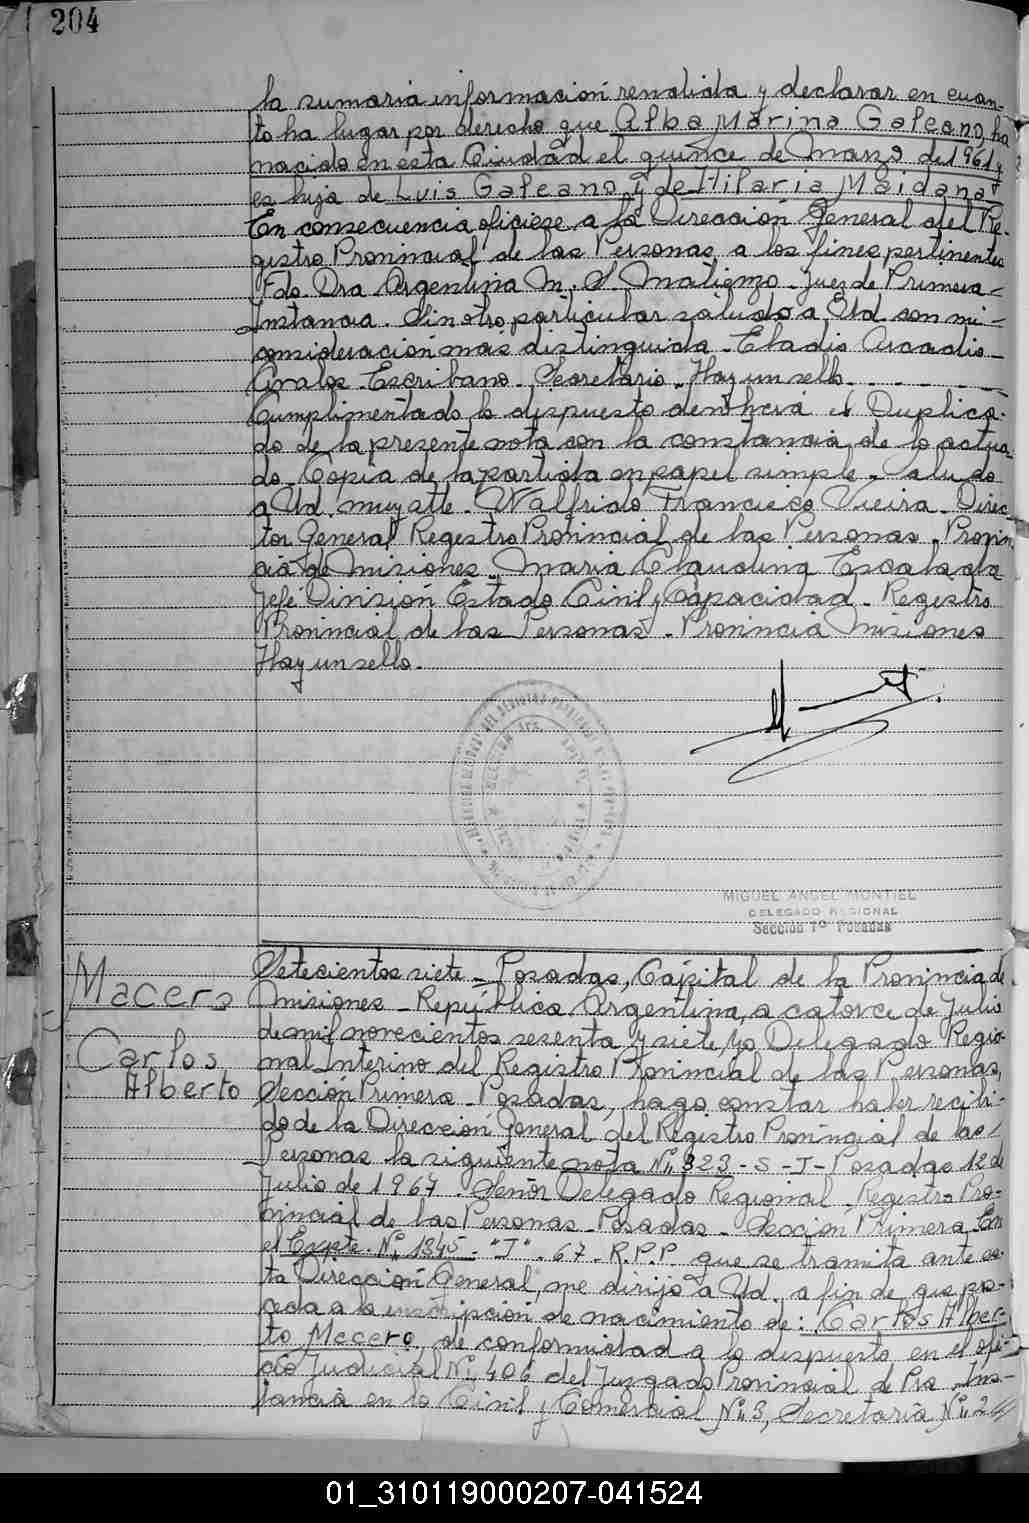 204
la sumaria información rendida y declarar en cuan-
to ha lugar por derecho que Alba Marina Galeano, ha
nacido en esta Ciudad el quince de Marzo de 1961 y
es hija de Luis Galeano y de Hilaria Maidana
En consecuencia ofíciese a la Dirección General del Re-
gistro Provincial de las Personas a los fines pertinentes
Fdo. Dra Argentina M. S. Matienzo - Juez de Primera
Instancia. Sin otro particular saludo a Ud. con mi
consideración más distinguida - Eladio Arcadio
Avalos - Escribano - Secretario - Hay un sello - - - - -
Cumplimentado lo dispuesto devolverá el Duplica-
do de la presente nota con la constancia de lo actua-
do - Copia de la partida en papel simple - Saludo
a Ud. muy atte - Walfrido Francisco Vieira - Direc-
tor General Registro Provincial de las Personas - Provin-
cia de Misiones - Maria Claudina Escalada
Jefé División Estado Civil y Capacidad - Registro
Provincial de las Personas - Provincia Misiones
Hay un sello -
MIGUEL ANGEL MONTIEL
DELEGADO REGIONAL
Sección 1º Posadas
Macero
Carlos
Alberto
Setecientos siete - Posadas, Capital de la Provincia de
Misiones - República Argentina, a catorce de Julio
de mil novecientos sesenta y siete, yo Delegado Regio-
nal Interino del Registro Provincial de las Personas,
Sección Primera - Posadas, hago constar haber recibi-
do de la Dirección General del Registro Provincial de las
Personas la siguiente nota Nº 323 - S - J - Posadas 12 de
Julio de 1967 - Señor Delegado Regional - Registro Pro-
vincial de las Personas - Posadas - Sección Primera En
el Expte. Nº 1345 - "J" - 67 - R.P.P. que se tramita ante es-
ta Dirección General, me dirijo a Ud. a fin de que pro-
ceda a la inscripción de nacimiento de: Carlos Alber-
to Macero, de conformidad a lo dispuesto en el ofi-
cio Judicial Nº 406 del Juzgado Provincial de Pra Ins-
tancia en lo Civil y Comercial Nº 3, Secretaria Nº 2
01_310119000207-041524